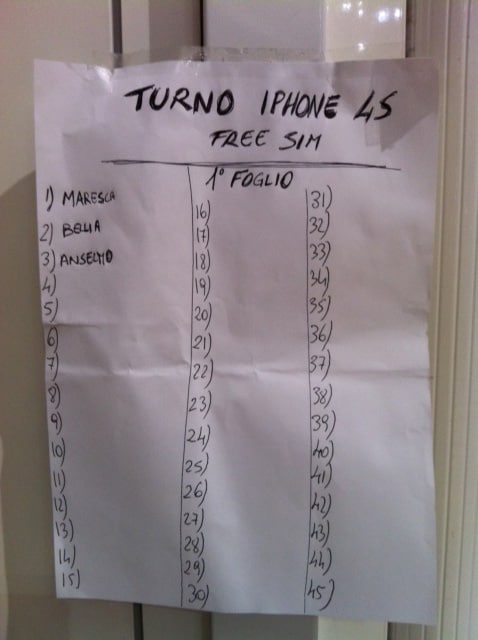 TURNO IPHONE 4S
FREE SIM
1° FOGLIO
1) MARESCA
2) BELLA
3) ANSELMO
4)
5)
6)
7)
8)
9)
10)
11)
12)
13)
14)
15)
16)
17)
18)
19)
20)
21)
22)
23)
24)
25)
26)
27)
28)
29)
30)
31)
32)
33)
34)
35)
36)
37)
38)
39)
40)
41)
42)
43)
44)
45)